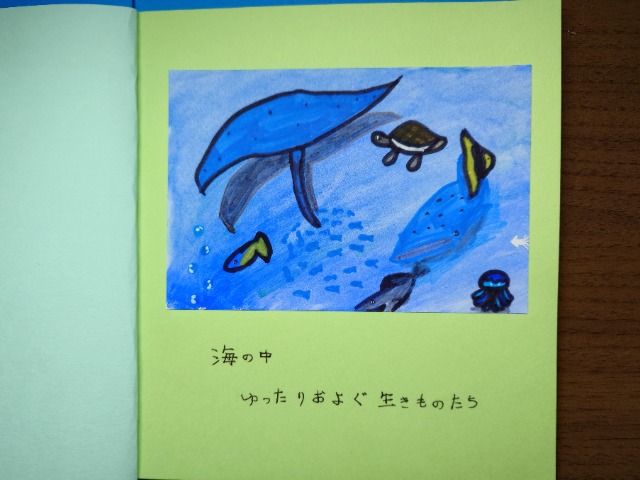 海の中
ゆったりおよぐ 生きものたち